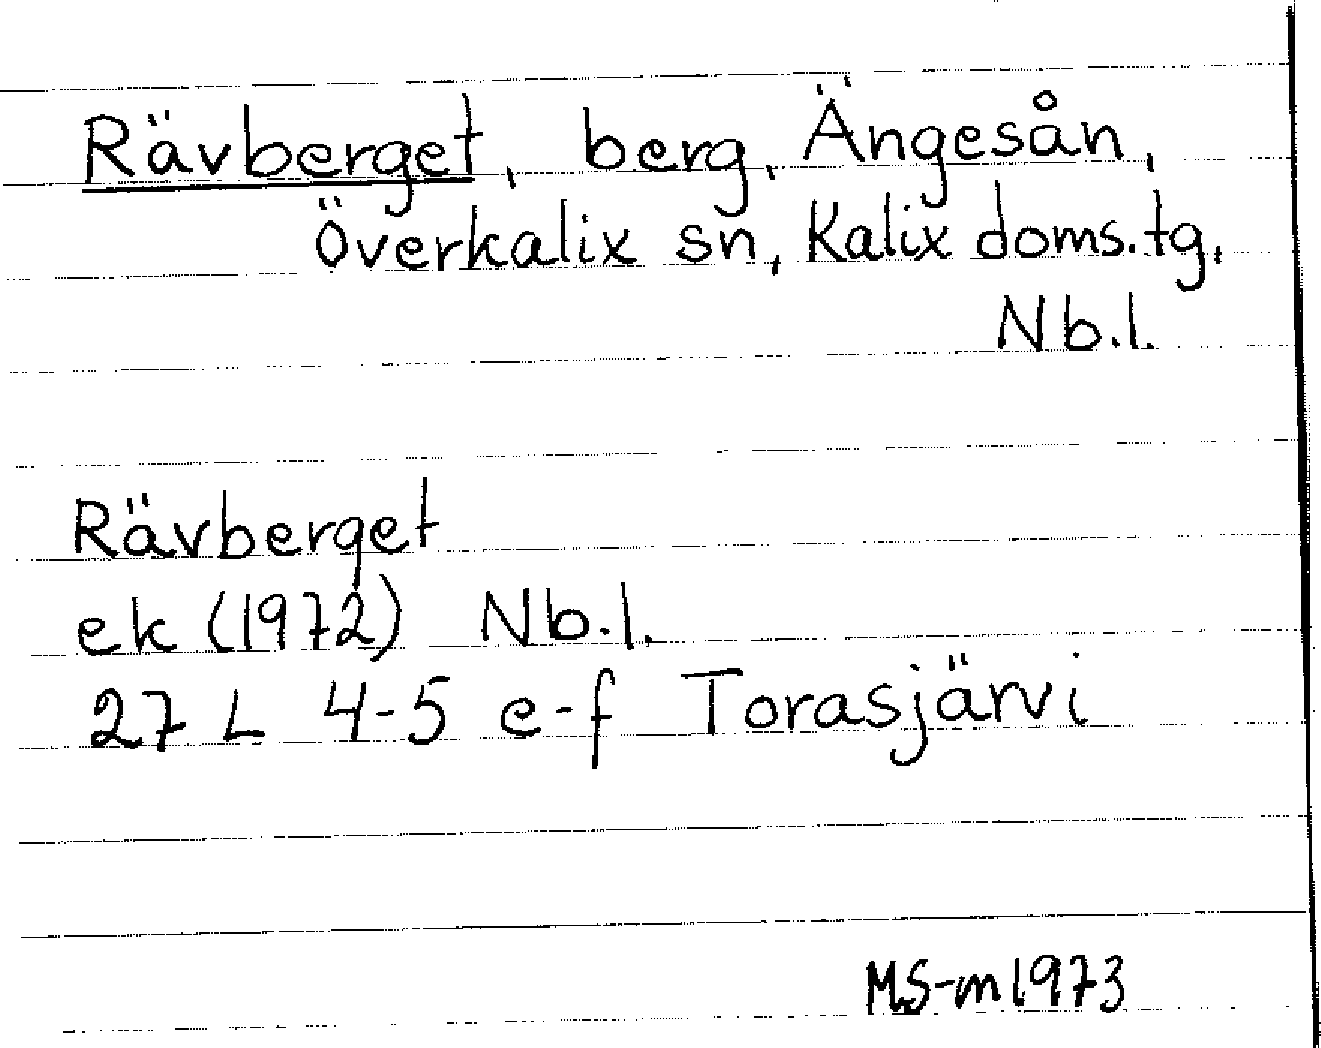 Rävberget, berg, Ängesån,
Överkalix sn, Kalix doms.tg,
Nb.l.
Rävberget
ek (1972) Nb.l.
27 L 4-5 e-f Torasjärvi
MS-m1973